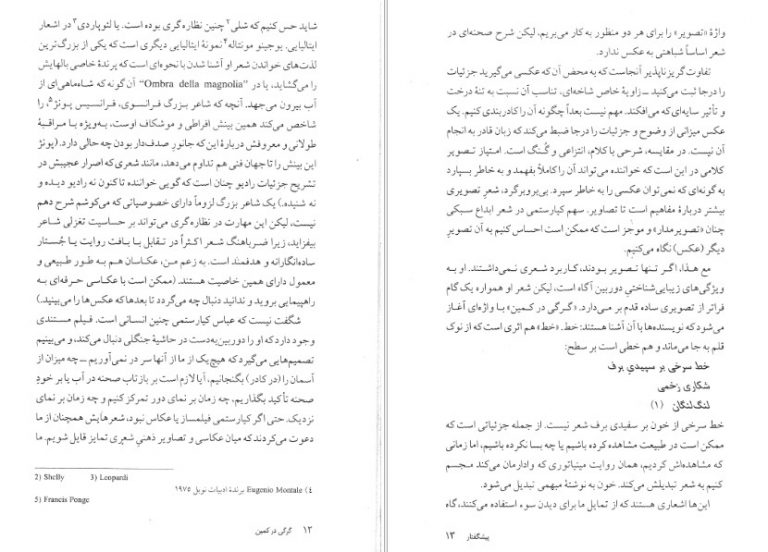 شاید حس کنیم که شلی۲ چنین نظاره‌گری بوده است. یا لئوپاردی۳ در اشعار
ایتالیایی. یوجینو مونتاله۴ نمونهٔ ایتالیایی دیگری است که یکی از بزرگ‌ترین
لذت‌های خواندن شعر او آشنا شدن با نحوه‌ای است که پرندهٔ خاصی بالهایش
را می‌گشاید، یا در "Ombra della magnolia" آن گونه که شاه‌ماهی‌ای از
آب بیرون می‌جهد. آنچه که شاعر بزرگ فرانسوی، فرانسیس پونژ۵ را
شاخص می‌کند همین بینش افراطی و موشکاف اوست، به‌ویژه با مراقبهٔ
طولانی و معروفش دربارهٔ این که جانور صدف‌دار بودن چه حالی دارد. (پونژ
این بینش را تا جهان فنی هم تداوم می‌دهد، مانند شعری که اصرار عجیبش در
تشریح جزئیات رادیو چنان است که گویی خواننده تاکنون نه رادیو دیده و
نه شنیده.) یک شاعر بزرگ لزوماً دارای خصوصیاتی که می‌کوشم شرح دهم
نیست، لیکن این مهارت در نظاره‌گری می‌تواند بر حساسیت تغزلی شاعر
بیفزاید، زیرا ضرباهنگ شعر اکثراً در تقابل با بافت روایت یا جُستار
ساده‌انگارانه و هدفمند است. به زعم من، عکاسان هم به طور طبیعی و
معمول دارای همین خاصیت هستند. (ممکن است با عکاسی حرفه‌ای به
راهپیمایی بروید و ندانید دنبال چه می‌گردد تا بعدها که عکس‌ها را می‌بینید.)
شگفت نیست که عباس کیارستمی چنین انسانی است. فیلم مستندی
وجود دارد که او را دوربین‌به‌دست در حاشیهٔ جنگلی دنبال می‌کند، و می‌بینیم
تصمیم‌هایی می‌گیرد که هیچ‌یک از ما از آنها سر در نمی‌آوریم ــ چه میزان از
آسمان را (در کادر) بگنجانیم، آیا لازم است بر بازتاب صحنه در آب یا بر خودِ
صحنه تأکید بگذاریم، چه زمان بر نمای دور تمرکز کنیم و چه زمان بر نمای
نزدیک. حتی اگر کیارستمی فیلمساز یا عکاس نبود، شعرهایش همچنان از ما
دعوت می‌کردند که میان عکاسی و تصاویر ذهنیِ شعری تمایز قایل شویم. ما
2) Shelly 3) Leopardi
۴) Eugenio Montale برندهٔ ادبیات نوبل ۱۹۷۵
5) Francis Ponge
۱۲ گرگی در کمین
واژهٔ «تصویر» را برای هر دو منظور به کار می‌بریم، لیکن شرح صحنه‌ای در
شعر اساساً شباهتی به عکس ندارد.
تفاوت گریزناپذیر آنجاست که به محض آن که عکسی می‌گیرید جزئیات
را درجا ثبت می‌کنید ــ زاویهٔ خاص شاخه‌ای، تناسب آن نسبت به تنهٔ درخت
و تأثیر سایه‌ای که می‌افکند. مهم نیست بعداً چگونه آن را کادربندی کنیم. یک
عکس میزانی از وضوح و جزئیات را درجا ضبط می‌کند که زبان قادر به انجام
آن نیست. در مقایسه، شرحی با کلام، انتزاعی و گُنگ است. امتیاز تصویر
کلامی در این است که خواننده می‌تواند آن را کاملاً بفهمد و به خاطر بسپارد
به گونه‌ای که نمی‌توان عکسی را به خاطر سپرد. بی‌بروبرگرد، شعرِ تصویری
بیشتر دربارهٔ مفاهیم است تا تصاویر. سهم کیارستمی در شعر ابداع سبکی
چنان «تصویرمدار» و موجَز است که ممکن است احساس کنیم به آن تصویرِ
دیگر (عکس) نگاه می‌کنیم.
مع هذا، اگر تنها تصویر بودند، کاربرد شعری نمی‌داشتند. او به
ویژگی‌های زیبایی‌شناختیِ دوربین آگاه است، لیکن شعر او همواره یک گام
فراتر از تصویری ساده قدم بر می‌دارد. «گرگی در کمین» با واژه‌ای آغاز
می‌شود که نویسنده‌ها با آن آشنا هستند: خط. «خط» هم اثری است که از نوک
قلم به جا می‌ماند و هم خطی است بر سطح:
خط سرخی بر سپیدی برف
شکاری زخمی
لنگ‌لنگان (۱)
خط سرخی از خون بر سفیدی برف شعر نیست. از جمله جزئیاتی است که
ممکن است در طبیعت مشاهده کرده باشیم یا چه بسا نکرده باشیم، اما زمانی
که مشاهده‌اش کردیم، همان روایت مینیاتوری که وادارمان می‌کند مجسم
کنیم به شعر تبدیلش می‌کند. خون به نوشتهٔ مبهمی تبدیل می‌شود.
این‌ها اشعاری هستند که از تمایل ما برای دیدن سوء استفاده می‌کنند، گاه
پیشگفتار ۱۳